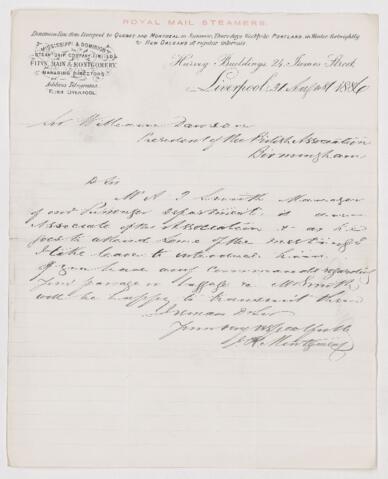 ROYAL MAIL STEAMERS.
Dominion Line from Liverpool to QUEBEC AND MONTREAL in Summer, Thursdays &
PORTLAND in Winter fortnightly
& NEW ORLEANS at regular intervals
MISSISSIPPI & DOMINION
STEAM SHIP COMPANY LIMITED
FLINN, MAIN & MONTGOMERY
MANAGING DIRECTORS
Address Telegrams
FLINN LIVERPOOL
24 James Street
Liverpool, 31 August 1886
Sir William Dawson
President of the British Association
Birmingham
D Sir
Mr A J Smith Manager
of our Passenger department is an
Associate of the Association & as he
goes to attend some of the meetings
I take leave to introduce him.
If you have any commands regarding
your passage or luggage &c Mr Smith
will be happy to transmit them
I remain D Sir
Yours very respectfully
J. R. Montgomery